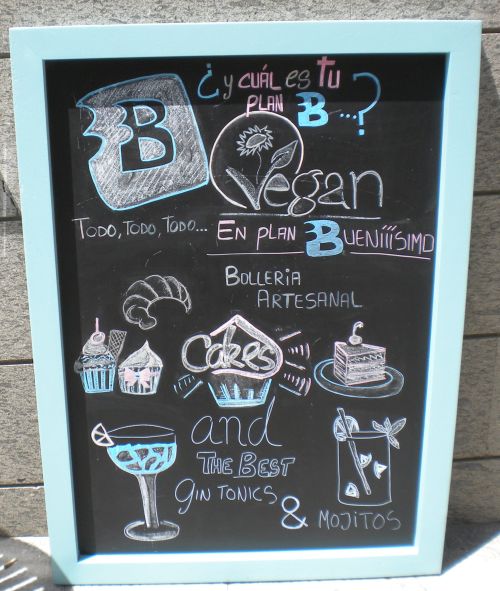 ¿Y CUÁL es TU
PLAN B...?
B
Vegan
TODO, TODO, TODO...
EN PLAN BUENÍÍÍSIMO
BOLLERIA
ARTESANAL
Cakes
and
THE BEST
GIN TONICS
& MOJITOS